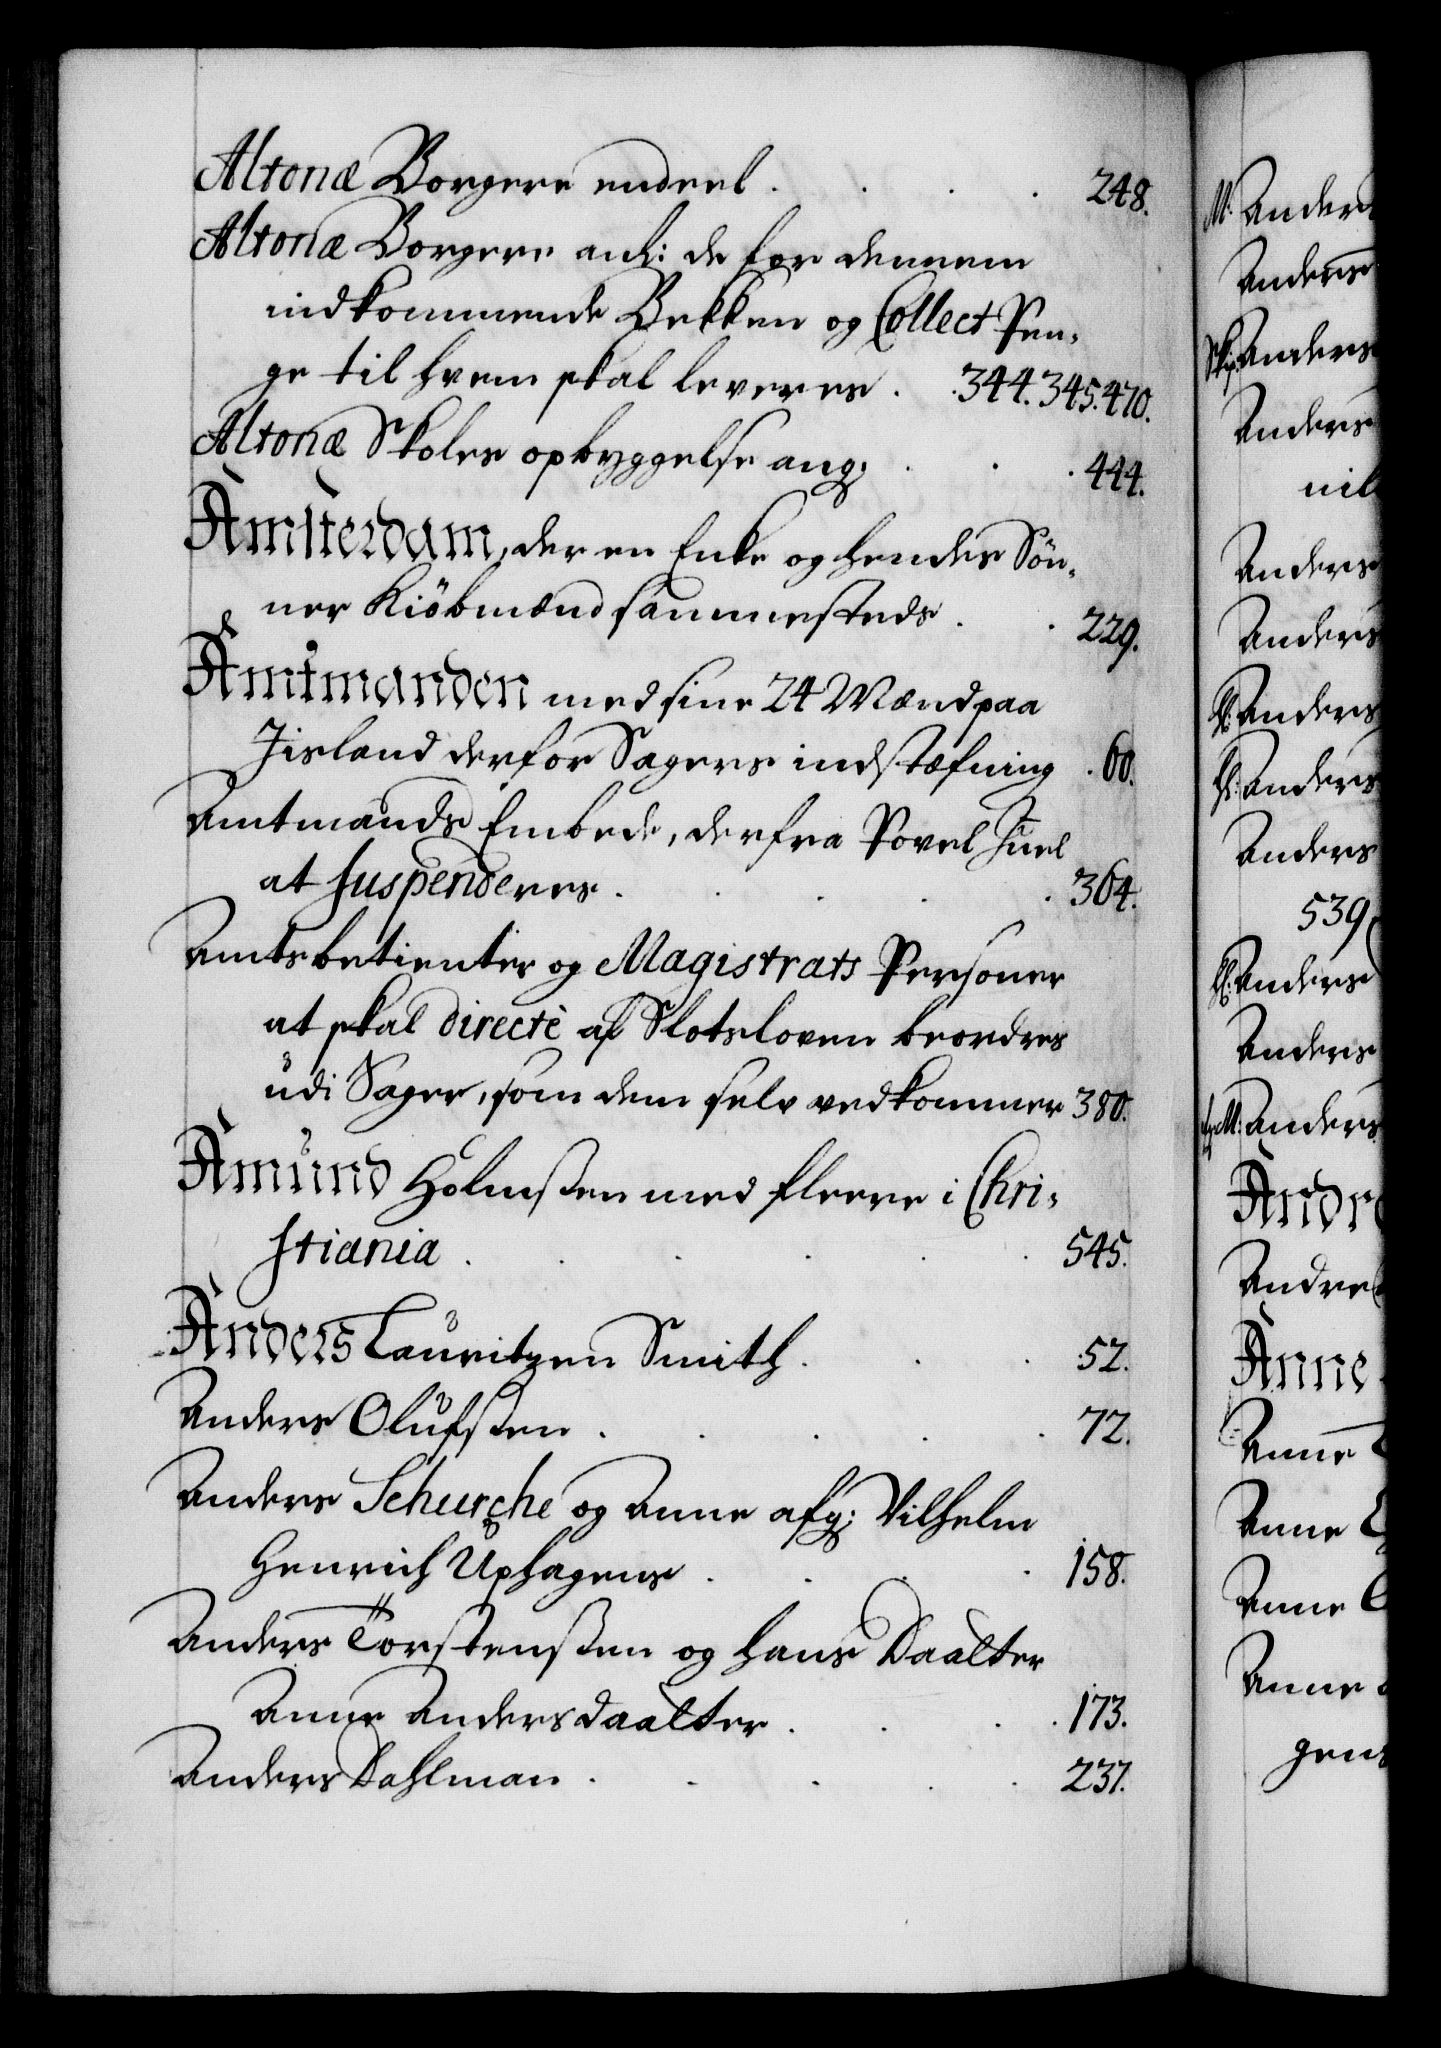 Altonæ Borgere endeel . . . . 248.
Altonæ Borgere anl: de for dennem
indkommende Bekken og Collect Pen-
ge til hvem skal leveres . . 344. 345. 470.
Altonæ Skoles opbyggelse ang: . . . 444.
Amsterdam, der en Enke og hendes Søn-
ner Kiöbmænd sammesteds . . 229.
Amtmanden med sine 24 Mænd paa
Jisland derfor Sagers indstæfning . 60.
Amtmands Embede, derfra Povel Juel
at suspenderes . . . . . 364.
Amtsbetienter og Magistrats Personer
at skal directè af Slotsloven beordres
udi Sager, som dem selv vedkommer 380.
Amund Holmsen med fleere i Chri-
stiania . . . . . . 545.
Anders Lauritzen Smith . . . 52.
Anders Olufsen . . . . . 72.
Anders Schurche og Anne afg: Vilhelm
Henrich Uphagens . . . . 158.
Anders Torstensen og hans Daatter
Anne Andersdaatter . . . . 173.
Anders Dahlman . . . . . 237.
M: Anders
Anders
Skip: Anders
Anders
Anders
Anders
Anders
Anders
Anders
539
Anders
Anders
Anders
Andre
Andre
Anne
Anne
Anne
Anne
Anne
gens